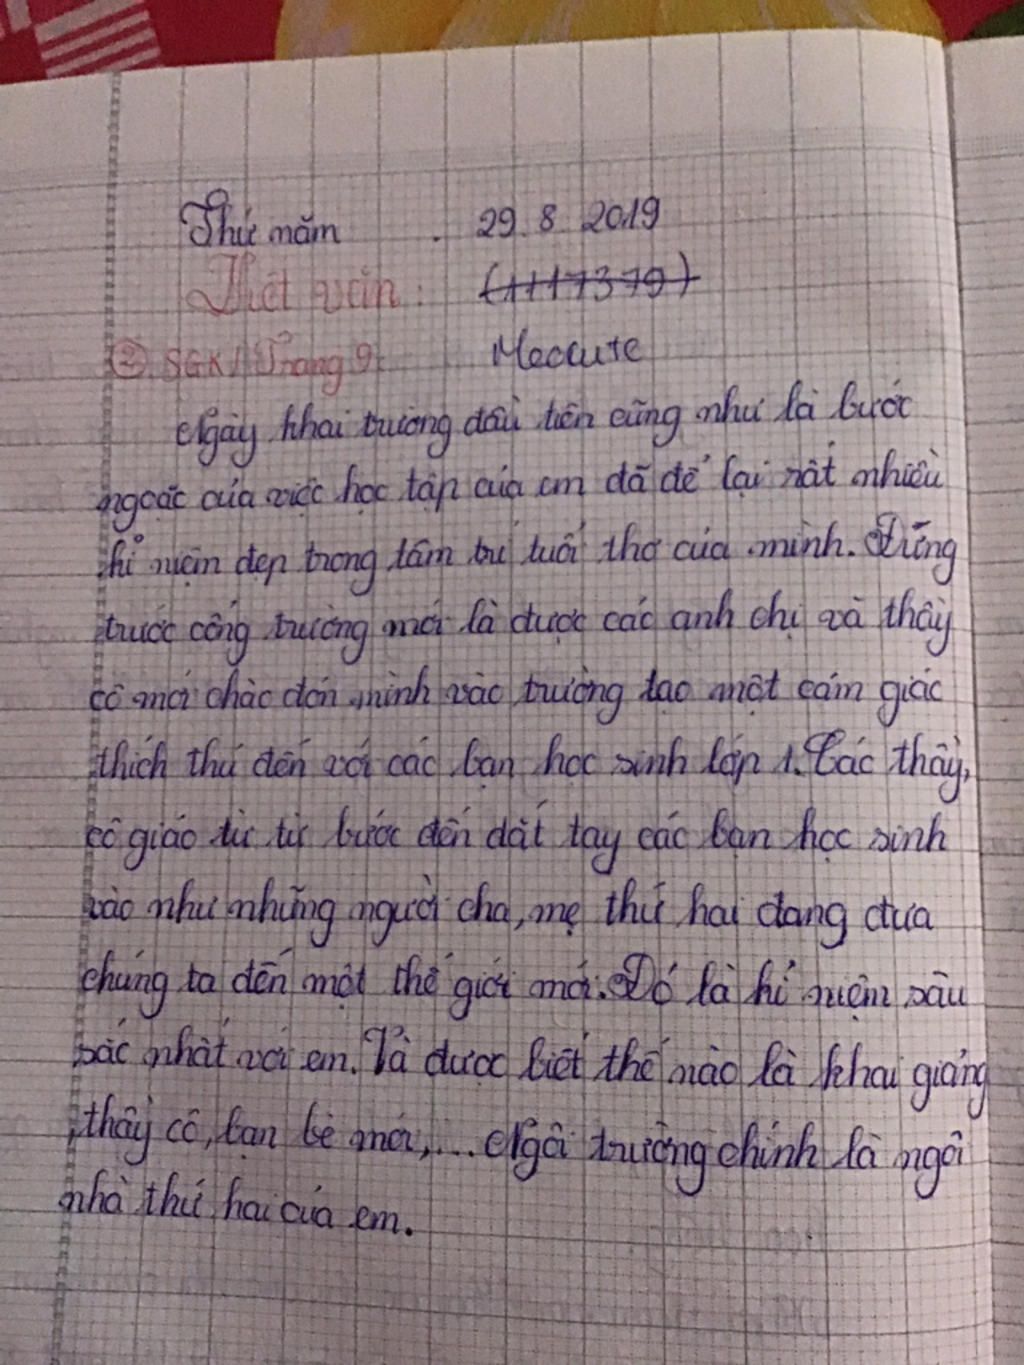 Thứ năm . 29.8.2019
Viết văn : (1117379)
② SGK / Trang 9: Meocute
Ngày khai trường đầu tiên cũng như là bước
ngoặc của việc học tập của em đã để lại rất nhiều
kỉ niệm đẹp trong tâm trí tuổi thơ của mình. Đứng
trước cổng trường mới là được các anh chị và thầy
cô mới chào đón mình vào trường tạo một cảm giác
thích thú đến với các bạn học sinh lớp 1. Các thầy,
cô giáo từ từ bước đến dắt tay các bạn học sinh
vào như những người cha, mẹ thứ hai đang đưa
chúng ta đến một thế giới mới. Đó là kỉ niệm sâu
sắc nhất với em. Là được biết thế nào là khai giảng
, thầy cô, bạn bè mới,... Ngôi trường chính là ngôi
nhà thứ hai của em.